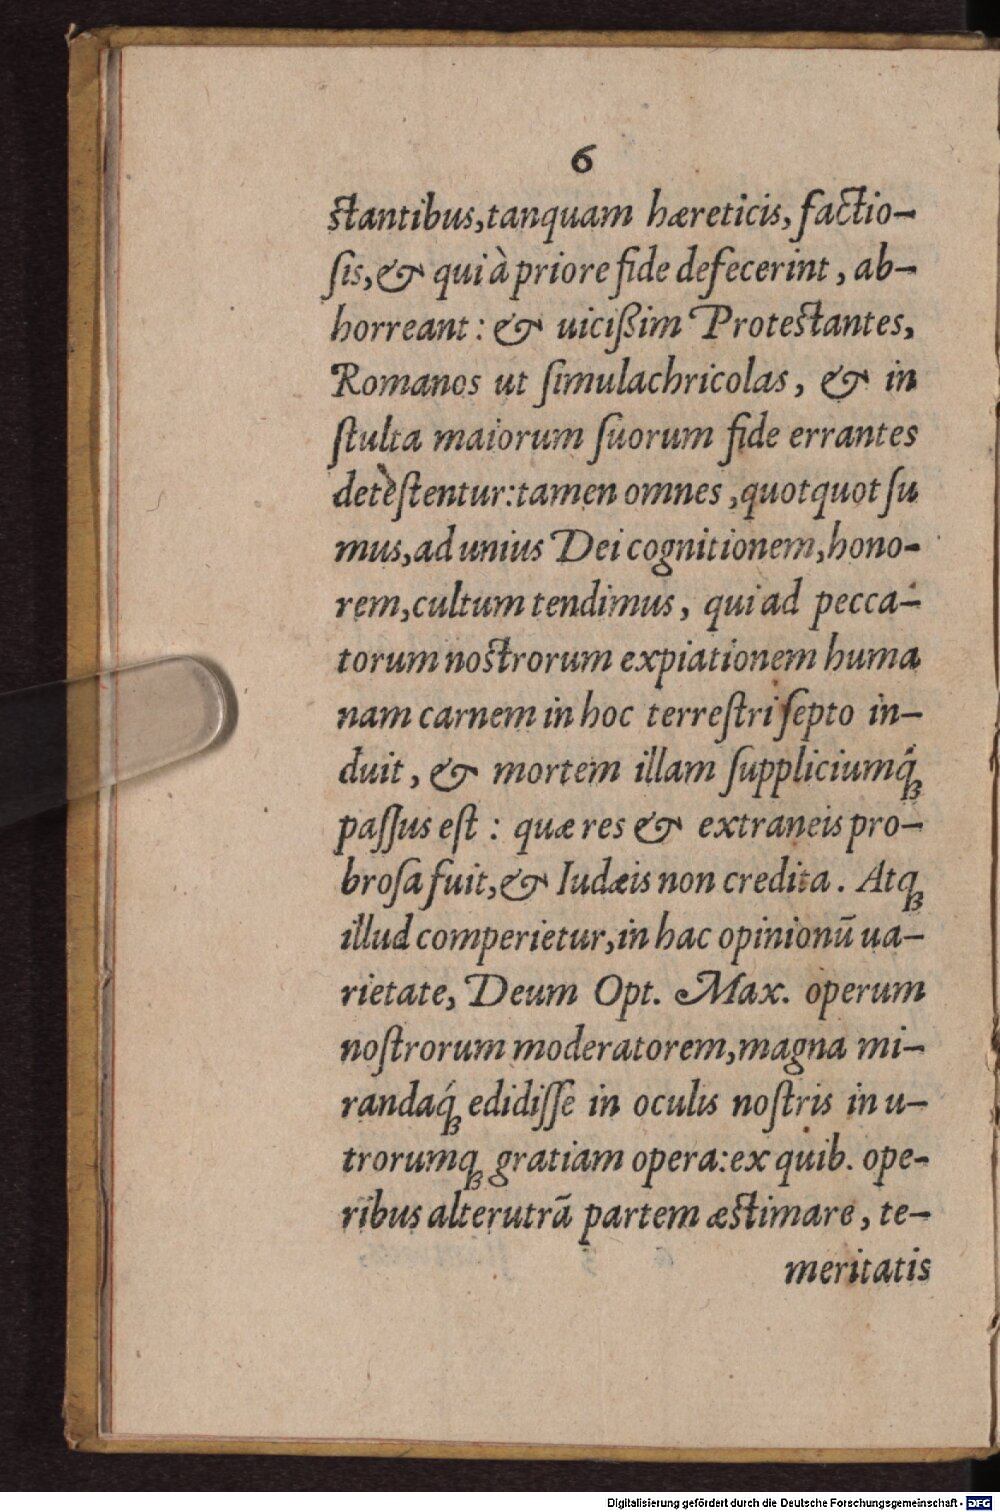 6
ſtantibus, tanquam hæreticis, factio-
ſis, & qui à priore fide defecerint, ab-
horreant: & uicißim Protestantes,
Romanos ut ſimulachricolas, & in
ſtulta maiorum ſuorum fide errantes
deteſtentur: tamen omnes, quotquot ſu
mus, ad unius Dei cognitionem, hono-
rem, cultum tendimus, qui ad pecca-
torum nostrorum expiationem huma
nam carnem in hoc terreſtri ſepto in-
duit, & mortem illam ſuppliciumq́ꝫ
paſſus eſt: quæ res & extraneis pro-
broſa fuit, & Iudæis non credita. Atqꝫ
illud comperietur, in hac opinionū ua-
rietate, Deum Opt. Max. operum
noſtrorum moderatorem, magna mi-
randaq́ꝫ edidiſſe in oculis noſtris in u-
trorumqꝫ gratiam opera: ex quib. ope-
ribus alterutrã partem æstimare, te-
meritatis
Digitalisierung gefördert durch die Deutsche Forschungsgemeinschaft - DFG